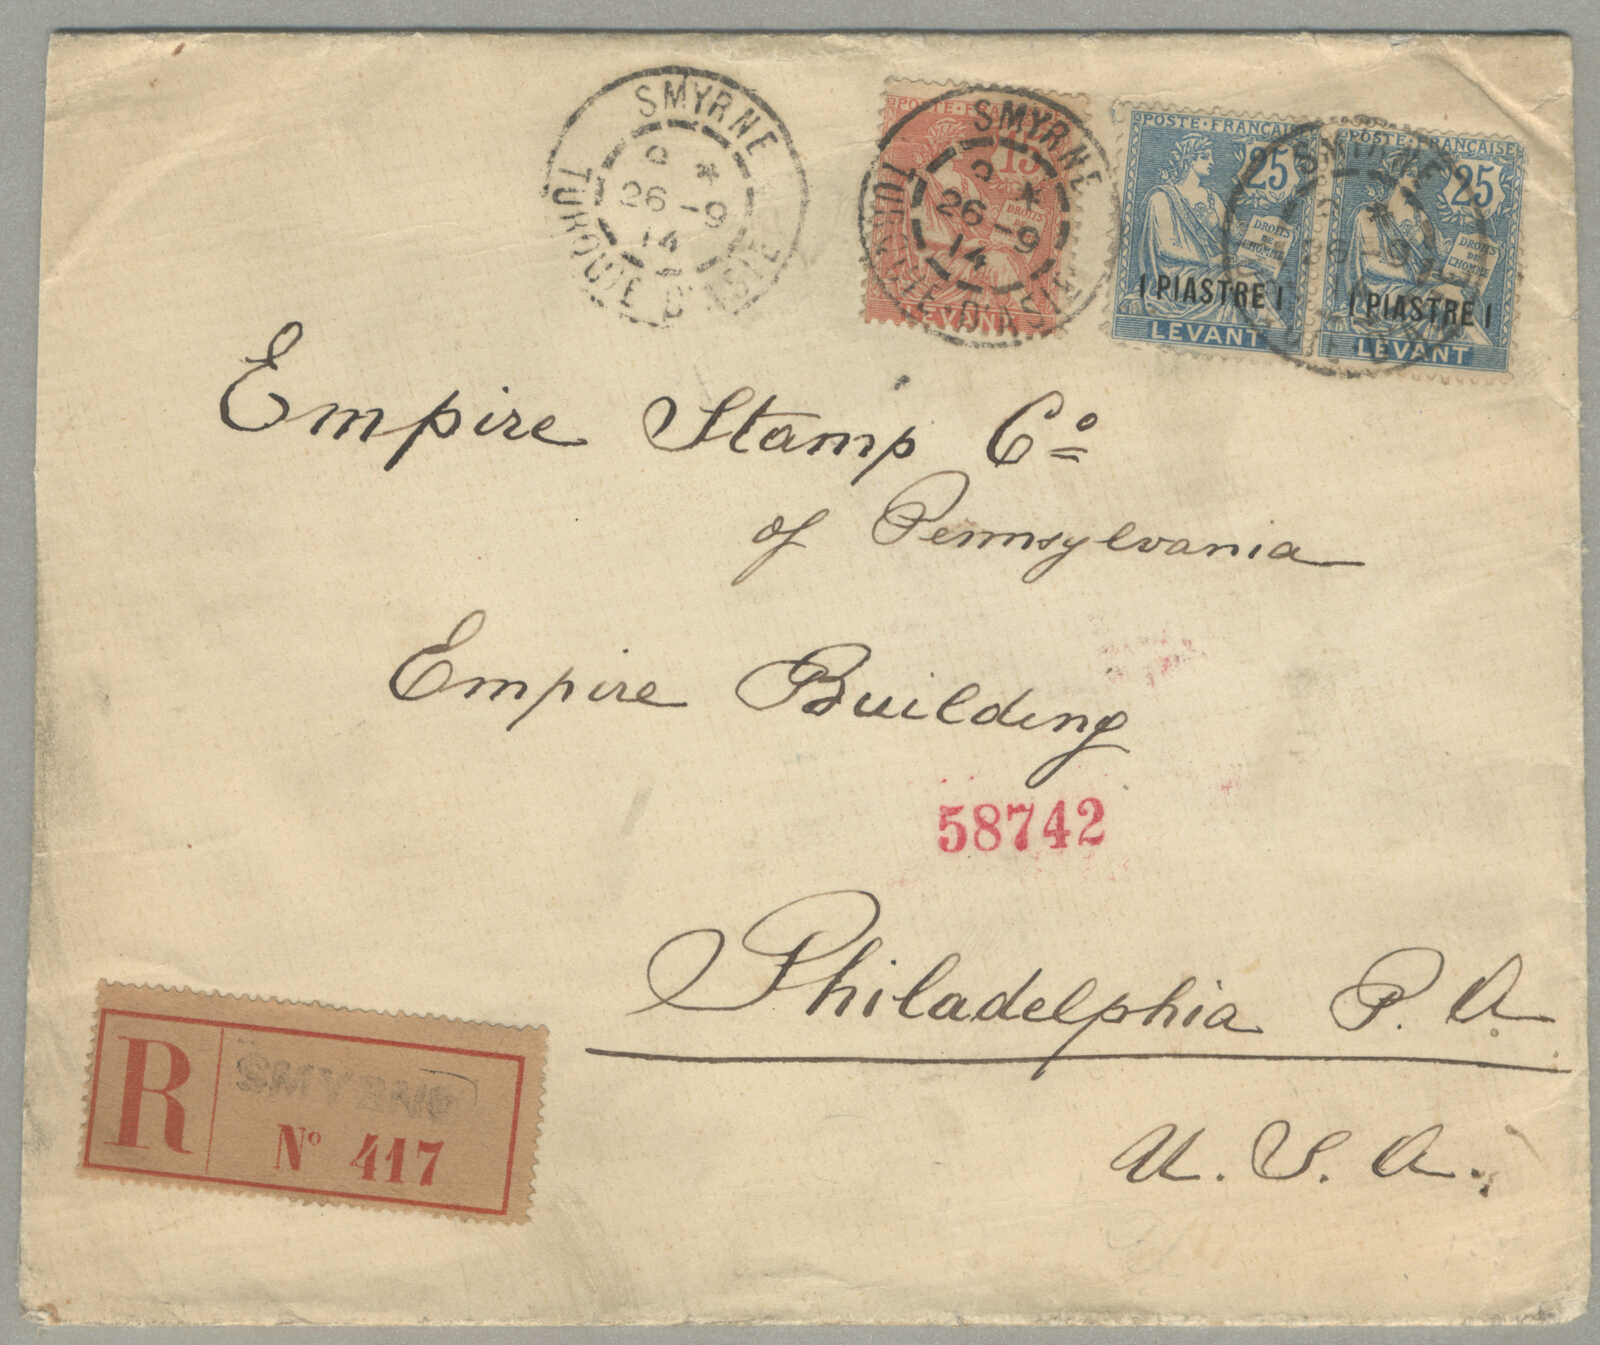 SMYRNE
*
26 -9
14
TURQUIE D'ASIE
POSTE FRANÇAISE
15
DROITS
LEVANT
SMYRNE
*
26 -9
14
TURQUIE D'ASIE
POSTE·FRANÇAISE
25
DROITS
DE
L'HOMME
1 PIASTRE 1
LEVANT
POSTE·FRANÇAISE
25
DROITS
DE
L'HOMME
1 PIASTRE 1
LEVANT
SMYRNE
*
26 -9
Empire Stamp Cº
of Pennsylvania
Empire Building
58742
Philadelphia P. A.
U. S. A.
R
SMYRNE
Nº 417